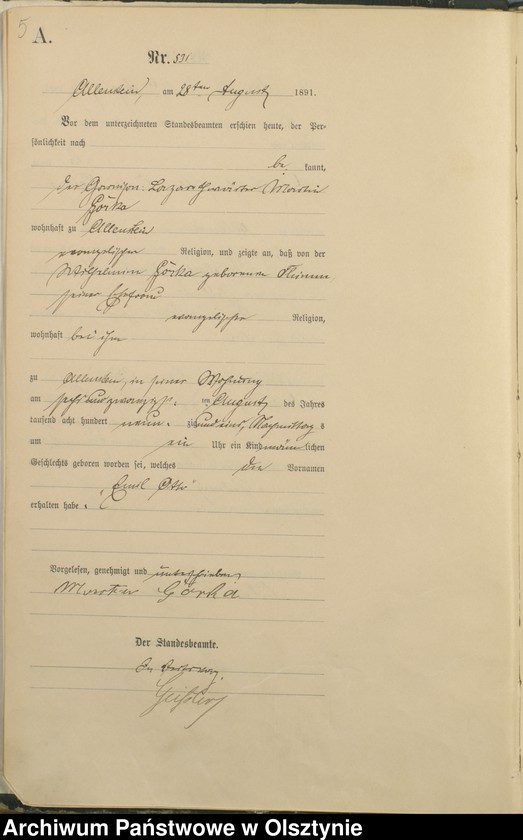 5
A.
Nr. 531
Allenstein, am 28ten August 1891.
Vor dem unterzeichneten Standesbeamten erschien heute, der Per-
sönlichkeit nach
be kannt,
der Garnison-Lazarethwärter Martin
Görka
wohnhaft zu Allenstein
evangelischer Religion, und zeigte an, daß von der
Wilhelmine Görka geborenen
seiner Ehefrau
evangelischer Religion,
wohnhaft bei ihm
zu Allenstein, in seiner Wohnung
am sechsundzwanzigst. ten August des Jahres
tausend acht hundert neun- zig und eins, Nachmittag s
um ein Uhr ein Kind männlichen
Geschlechts geboren worden sei, welches die Vornamen
„Emil Otto“
erhalten habe.
Vorgelesen, genehmigt und unterschrieben
Martin Görka
Der Standesbeamte.
In Vertretung.
Archiwum Państwowe w Olsztynie